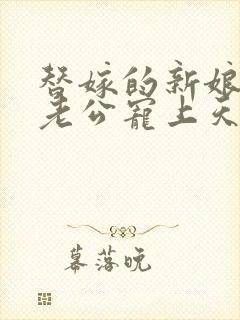 替嫁的新娘
老公宠上天
幕落晚